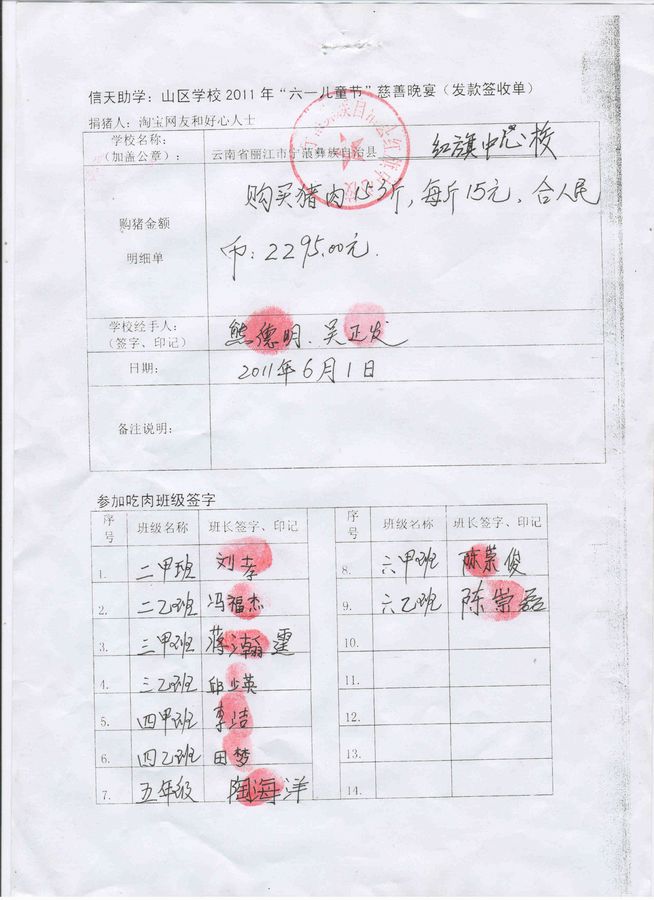 信天助学：山区学校 2011 年“六一儿童节”慈善晚宴（发款签收单）
捐猪人：淘宝网友和好心人士
学校名称：
（加盖公章）：
云南省丽江市宁蒗彝族自治县 红旗中心校
购猪金额
明细单
购买猪肉153斤，每斤15元，合人民
币：2295.00元.
学校经手人：
（签字、印记）
熊德明、吴正发
日期：
2011年6月1日
备注说明：
参加吃肉班级签字
序号 班级名称 班长签字、印记 序号 班级名称 班长签字、印记
1. 二甲班 刘孝 8. 六甲班 陈荣俊
2. 二乙班 冯福杰 9. 六乙班 陈崇磊
3. 三甲班 蒋瀚霆 10.
4. 三乙班 邱少英 11.
5. 四甲班 李洁 12.
6. 四乙班 田梦 13.
7. 五年级 陶海洋 14.